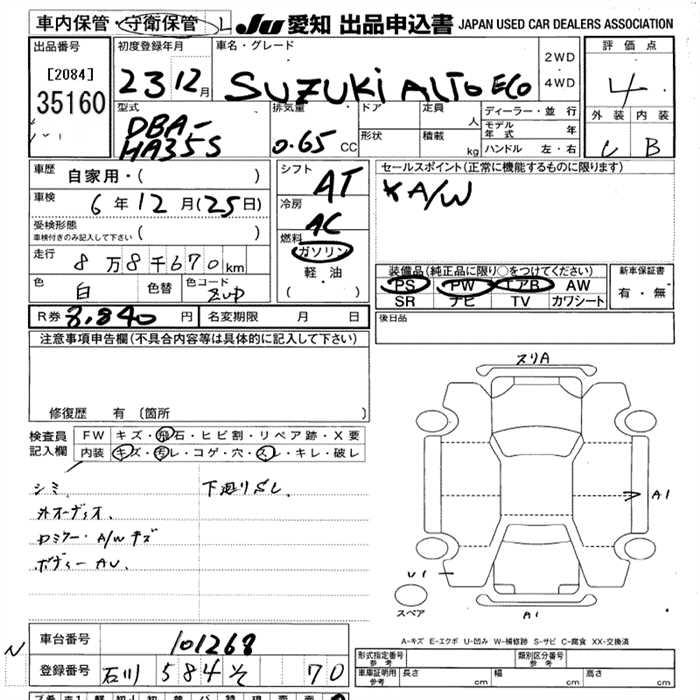 車内保管・守衛保管 L JU 愛知 出品申込書 JAPAN USED CAR DEALERS ASSOCIATION
出品番号 初度登録年月 車名・グレード 2WD・4WD 評価点
[2084] 35160 23 12月 SUZUKI ALTO ECO 4
型式 排気量 ドア 定員 人 ディーラー・並行 外装 内装
DBA-HA35S 0.65 CC 形状 積載 kg モデル年式 年 ハンドル 左・右 B
車歴 自家用・( ) シフト AT セールスポイント(正常に機能するものに限ります)
車検 6年12月(25日) 冷房 AC A/W
受検形態 車検付きのみ記入して下さい ( ) 燃料 ガソリン
走行 8万8千670km 軽・油 装備品(純正品に限り○をつけてください) 新車保証書
色 白 色替 色コード ( ) PS PW エアB AW 有・無
SR ナビ TV カワシート
R券 8,840円 名変期限 月 日 後日品
注意事項申告欄(不具合内容等は具体的に記入して下さい)
修復歴 有 〔箇所
スリA
検査員記入欄 FW キズ・飛石・ヒビ割・リペア跡・X要
内装 キズ・汚レ・コゲ・穴・スレ・キレ・破レ
シミ 下廻りサビ
外オーディオ
ロミラー・A/Wキズ
ボディーAU
A1
U1
スペア
A1
A-キズ E-エクボ U-凹み W-補修跡 S-サビ C-腐食 XX-交換済
N 車台番号 101268
形式指定番号 参考 類別区分番号 参考
登録番号 石川 584 そ 70
車庫証明用 参考 長さ cm 幅 cm 高さ cm